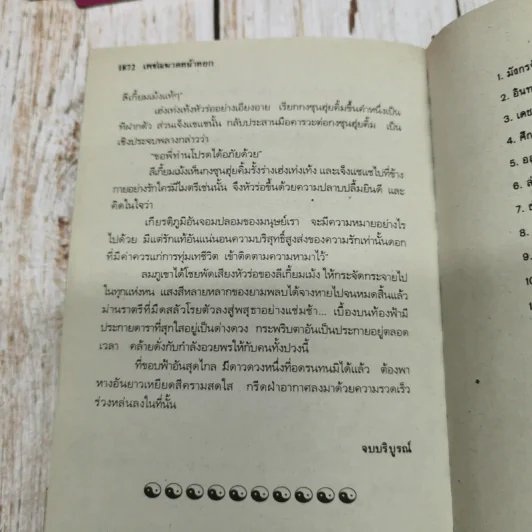 1872 เพชฌฆาตหน้าหยก
ลี้เกี้ยมเม้งแท้ๆ"
เฮ่งเท่งเท้งหัวร่ออย่างเอียงอาย เรียกกงซุนฮุ่ยคิ้มขึ้นคำหนึ่งเป็น
ที่ฝากตัว ส่วนเจ็งแชแชนั้น กลับประสานมือคารวะต่อกงซุนฮุ่ยคิ้ม เป็น
เชิงประจบพลางกล่าวว่า
"ขอพี่ท่านโปรดได้อภัยด้วย"
ลี้เกี้ยมเม้งเห็นกงซุนฮุ่ยคิ้มรั้งร่างเฮ่งเท่งเท้ง และเจ็งแชแชไปที่ข้าง
กายอย่างรักใคร่มีไมตรีเช่นนั้น จึงหัวร่อขึ้นด้วยความปลาบปลื้มยินดี และ
คิดในใจว่า
เกียรติภูมิอันจอมปลอมของมนุษย์เรา จะมีความหมายอย่างไร
ไปด้วย มีแต่รักแท้อันแน่นอนความบริสุทธิ์สูงส่งของความรักเท่านั้นดอก
ที่มีค่าควรแก่การทุ่มเทชีวิต เข้าติดตามความหามาไว้"
ลมภูเขาได้โชยพัดเสียงหัวร่อของลี้เกี้ยมเม้ง ให้กระจัดกระจายไป
ในทุกแห่งหน แสงสีหลายหลากของยามพลบได้จางหายไปจนหมดสิ้นแล้ว
ม่านราตรีที่มืดสลัวโรยตัวลงสู่พสุธาอย่างแช่มช้า... เบื้องบนท้องฟ้ามี
ประกายดาราที่สุกใสอยู่เป็นต่างดวง กระพริบตาอันเป็นประกายอยู่ตลอด
เวลา คล้ายดั่งกับกำลังอวยพรให้กับคนทั้งปวงนี้
ที่ขอบฟ้าอันสุดไกล มีดาวดวงหนึ่งที่อดรนทนมิได้แล้ว ต้องพา
หางอันยาวเหยียดสีครามสดใส กรีดฝ่าอากาศลงมาด้วยความรวดเร็ว
ร่วงหล่นลงในที่นั้น
จบบริบูรณ์
1. มังกร
2. อินท
3. เดช
4. ศึก
5.
6.
7.
8.
9.
10